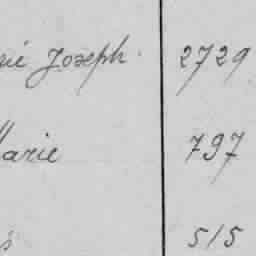 Joseph 2729
Marie 797
515